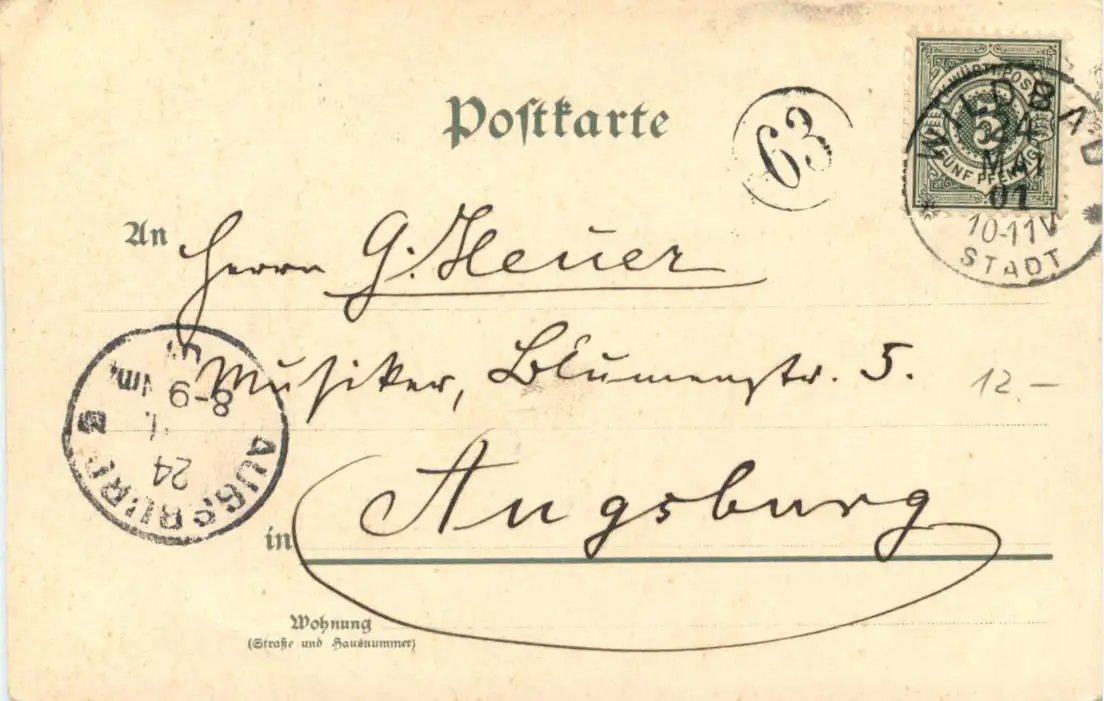 Postkarte
63
K. WÜRTT. POST
5
FÜNF PFENNIG
WILDBAD
24
MAI
01
10-11V
STADT
An Herrn G. Heuer
Musiker, Blumenstr. 5.
12.-
AUGSBURG
24
8-9 Nm.
in Augsburg
Wohnung
(Straße und Hausnummer)